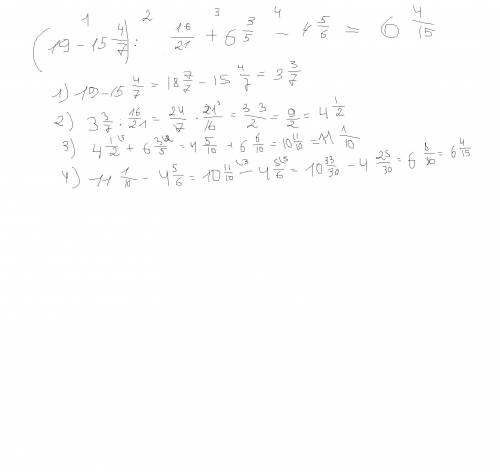 1 2 3 4
(19 - 15 4/7) : 16/21 + 6 3/5 - 4 5/6 = 6 4/15
1) 19 - 15 4/7 = 18 7/7 - 15 4/7 = 3 3/7
2) 3 3/7 : 16/21 = 24/7 · 21/16 = 3·3/2 = 9/2 = 4 1/2
3) 4 1/2 + 6 3/5 = 4 5/10 + 6 6/10 = 10 11/10 = 11 1/10
4) 11 1/10 - 4 5/6 = 10 11/10 - 4 5/6 = 10 33/30 - 4 25/30 = 6 8/30 = 6 4/15